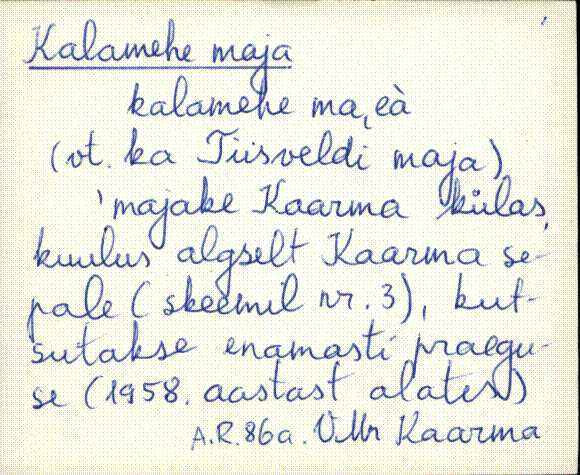 Kalamehe maja
kalamehe ma͕eà
(vt. ka Tiisveldi maja)
'majake Kaarma külas,
kuulus algselt Kaarma se-
pale (skeemil nr. 3), kut-
sutakse enamasti praegu-
se (1958. aastast alates)
A.R. 86a. VMr Kaarma